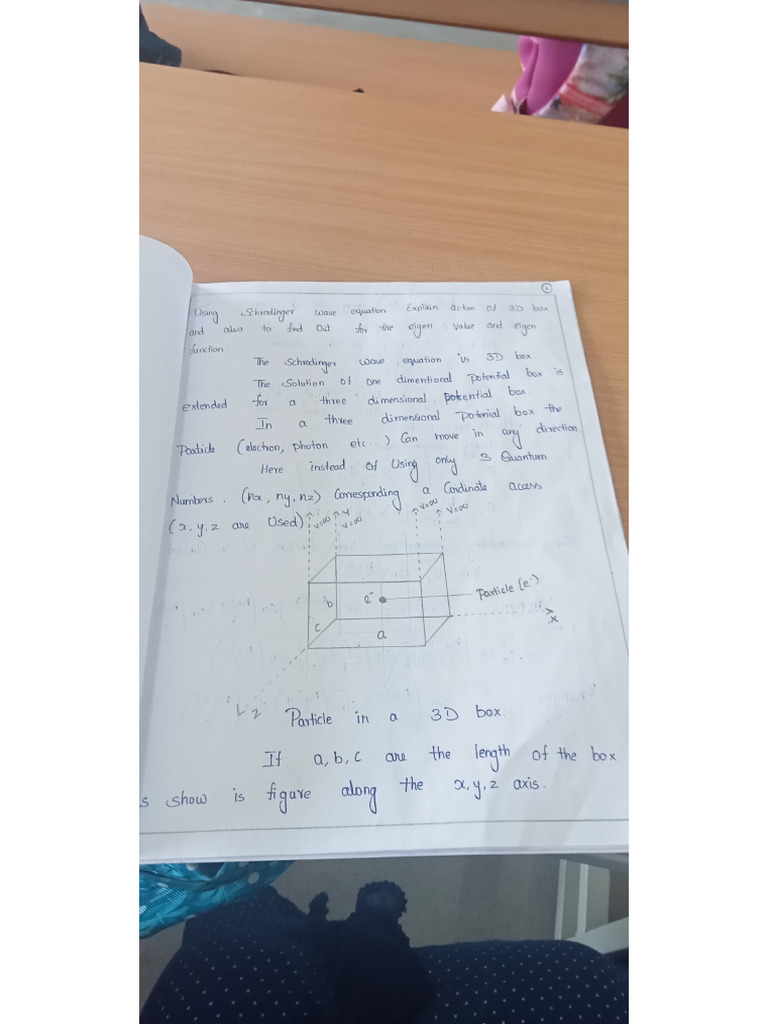 1
Using Shrodinger wave equation Explain action of 3D box
and also to find out for the eigen value and eigen
function
The Schrodinger wave equation is 3D box
The Solution of one dimentional potential box is
extended for a three dimensional potential box
In a three dimensional Potenial box the
Paticle (electron, photon etc...) Can move in any direction.
Here instead of Using only 3 Quantum
Numbers. (nx, ny, nz) Corresponding a Cordinate access
(x, y, z are Used)
V=∞ y V=∞ V=∞ V=∞
b e- Particle (e-)
c a x
z
Particle in a 3D box.
If a, b, c are the length of the box
s show is figure along the x, y, z axis.